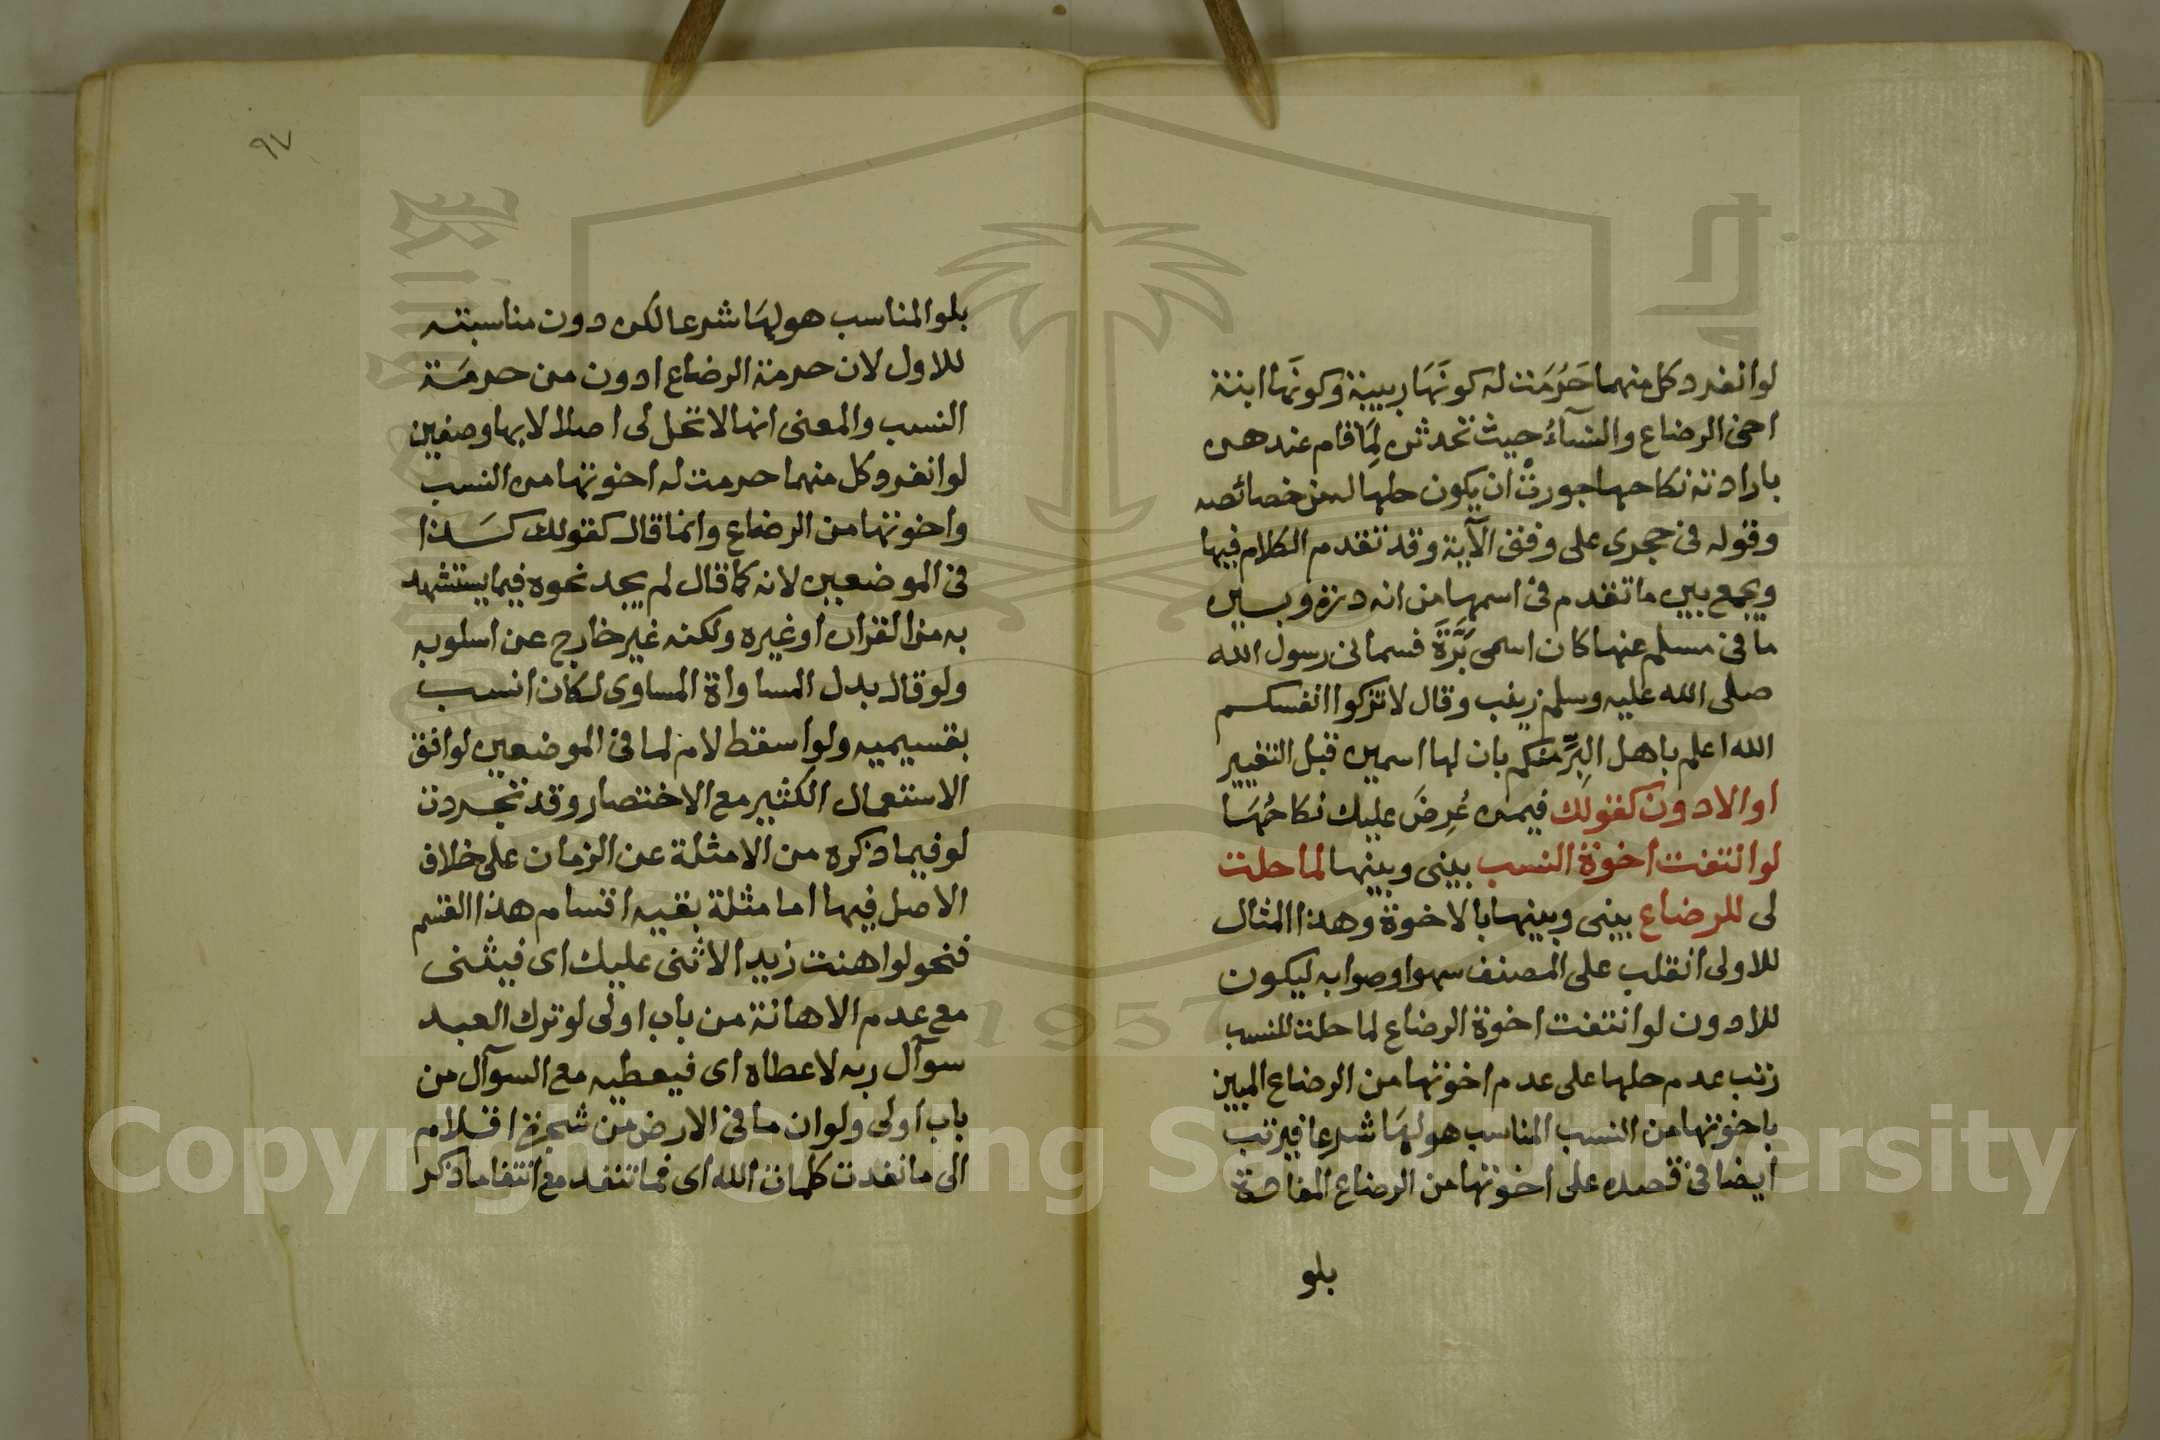 لوانفرد كل منهما حَرُمَت له كونَهَا ربيبة وكونَها ابنة
اخي الرضاع والنسآءُ حيث تحدثن لِمَا قام عندهن
بارادته نكاحها جوزن ان يكون حلها له من خصائصه
وقوله في حجري على وفق الآية وقد تقدم الكلام فيها
ويجمع بين ما تقدم في اسمها من انه درة وبين
ما في مسلم عنها كان اسمي بَرَّةَ فسماني رسول الله
صلى الله عليه وسلم زينب وقال لا تزكوا انفسكم
الله اعلم باهل البِرِّ منكم بان لها اسمين قبل التغيير
او الادون كقولك فيمن عُرِضَ عليك نكاحُهَا
لو انتفت اخوة النسب بيني وبينها لما حلت
لي للرضاع بيني وبينها بالاخوة وهذا المثال
للاولى انقلب على المصنف سهوا وصوابه ليكون
للادون لو انتفت اخوة الرضاع لما حلت للنسب
رتب عدم حلها على عدم اخوتها من الرضاع المبين
باخوتها من النسب المناسب هو لهَا شرعا فيرتب
ايضا في قصده على اخوتها من الرضاع المفادة
بلو
٩٧
بلو المناسب هو لهَا شرعا لكن دون مناسبته
للاول لان حرمة الرضاع ادون من حرمَة
النسب والمعنى انها لا تحل لي اصلا لا بها وصفين
لو انفرد كل منهما حرمت له اخوتها من النسب
واخوتها من الرضاع وانما قال كقولك كَذا
في الموضعين لانه كما قال لم يجد نحوه فيما يستشهد
به من القران او غيره ولكنه غير خارج عن اسلوبه
ولو قال بدل المساواة المساوي لكان انسب
بقسيميه ولو اسقط لام لما في الموضعين لوافق
الاستعمال الكثير مع الاختصار وقد تجردت
لو فيما ذكره من الامثلة عن الزمان على خلاف
الاصل فيها اما مثلة بقيه اقسام هذا القسم
فنحو لو اهنت زيدا لاثنى عليك اى فيثنى
مع عدم الاهانة من باب اولى لو ترك العبد
سوآل ربه لاعطاه اى فيعطيه مع السوآل من
باب اولى ولو ان ما في الارض من شجرة اقلام
الى ما نفدت كلمات الله اى فما تنفد مع انتفا ما ذكر
1957
Copyright © King Saud University